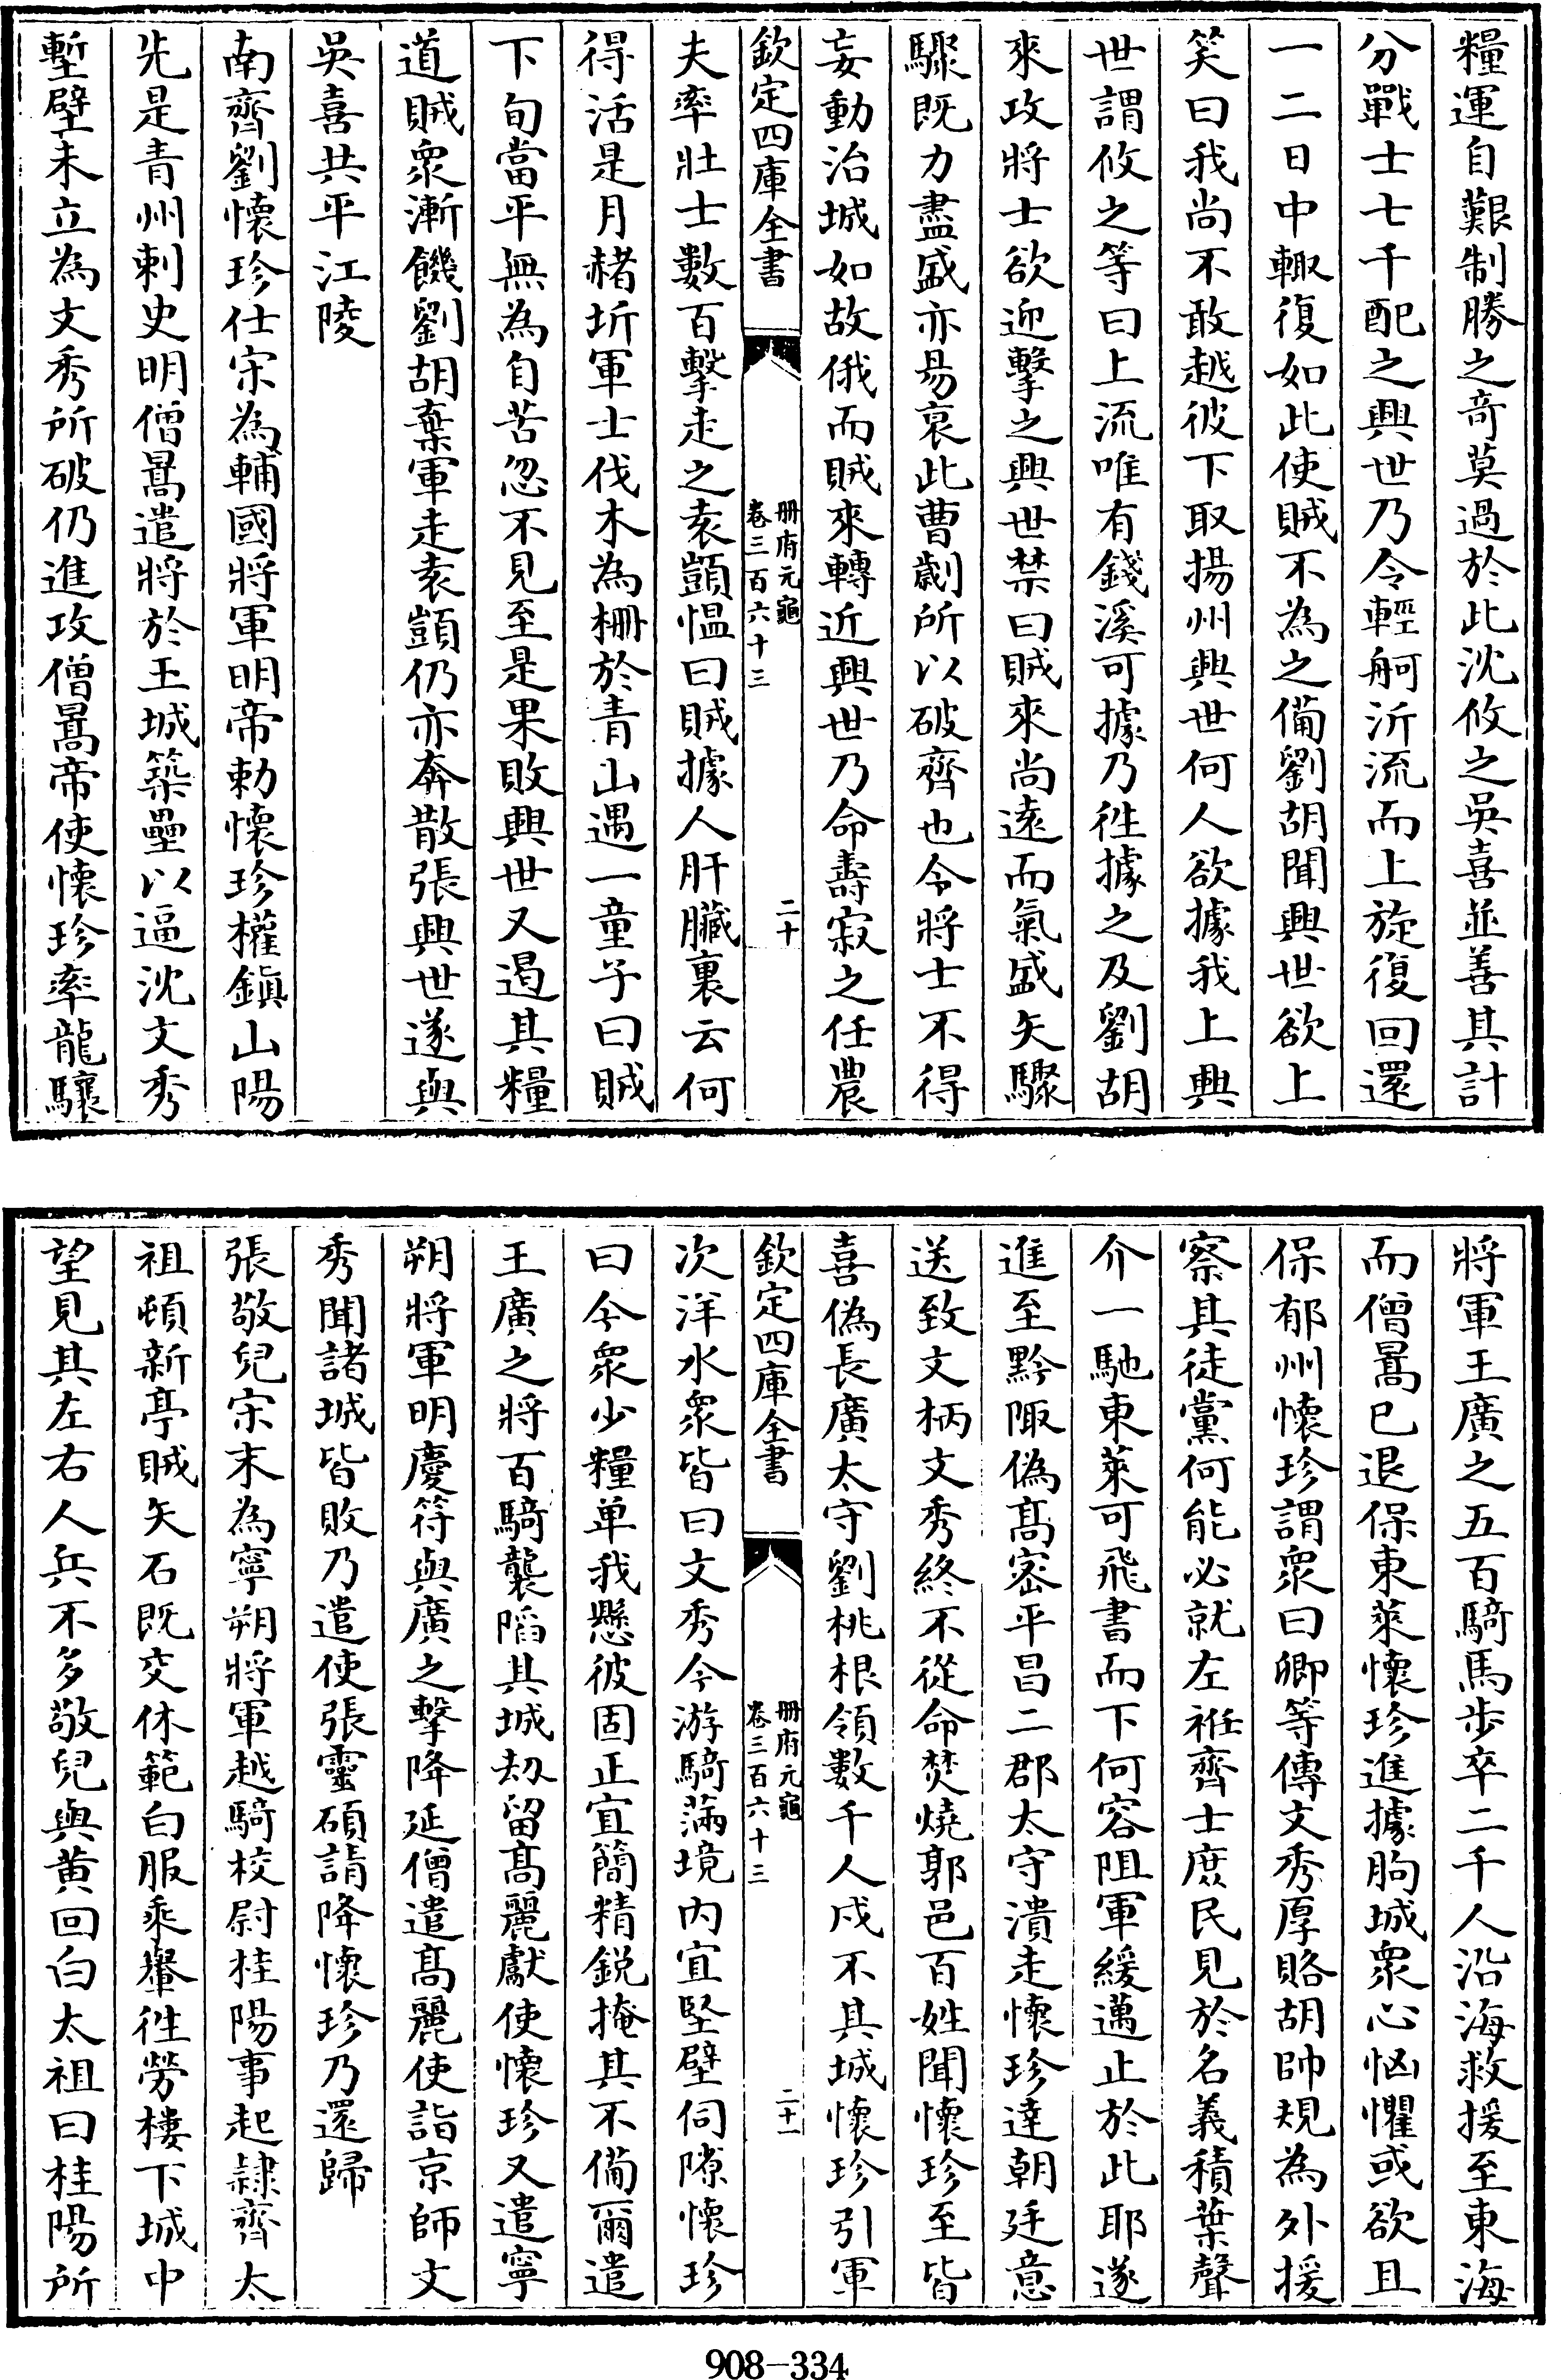 糧運自艱制勝之奇莫過於此沈攸之吳喜並善其計
分戰士七千配之興世乃令輕舸沂流而上旋復回還
一二日中輙復如此使賊不為之備劉胡聞興世欲上
笑曰我尚不敢越彼下取揚州興世何人欲據我上興
世謂攸之等曰上流唯有錢溪可據乃徃據之及劉胡
來攻將士欲迎擊之興世禁曰賊來尚逺而氣盛矢驟
驟既力盡盛亦易衰此曹劌所以破齊也令將士不得
妄動治城如故俄而賊來轉近興世乃命壽寂之任農
欽定四庫全書
冊府元龜
卷三百六十三
二十
夫率壯士數百擊走之袁顗愠曰賊據人肝臟裏云何
得活是月赭圻軍士伐木為柵於青山遇一童子曰賊
下旬當平無為自苦忽不見至是果敗興世又遏其糧
道賊衆漸饑劉胡棄軍走袁顗仍亦奔散張興世遂與
吳喜共平江陵
南齊劉懷珍仕宋為輔國將軍明帝勅懷珍權鎮山陽
先是青州刺史明僧暠遣將於王城築壘以逼沈文秀
塹壁未立為文秀所破仍進攻僧暠帝使懷珍率龍驤
將軍王廣之五百騎馬步卒二千人沿海救援至東海
而僧暠已退保東萊懷珍進據朐城衆心恟懼或欲且
保郁州懷珍謂衆曰卿等傳文秀厚賂胡帥規為外援
察其徒黨何能必就左袵齊士庶民見於名義積葉聲
介一馳東萊可飛書而下何容阻軍緩邁止於此耶遂
進至黔陬偽髙宻平昌二郡太守潰走懷珍達朝廷意
送致文柄文秀終不從命焚燒郭邑百姓聞懷珍至皆
喜偽長廣太守劉桃根領數千人戍不其城懷珍引軍
欽定四庫全書
冊府元龜
卷三百六十三
二十一
次洋水衆皆曰文秀今游騎滿境内宜堅壁伺隙懷珍
曰今衆少糧单我懸彼固正宜簡精鋭掩其不備爾遣
王廣之將百騎襲䧟其城刼留髙麗獻使懷珍又遣寧
朔將軍明慶符與廣之擊降延僧遣髙麗使詣京師文
秀聞諸城皆敗乃遣使張靈碩請降懷珍乃還歸
張敬兒宋末為寧朔將軍越騎校尉桂陽事起隷齊太
祖頓新亭賊矢石既交休範白服乘轝徃勞樓下城中
望見其左右人兵不多敬兒與黄回白太祖曰桂陽所
908-334